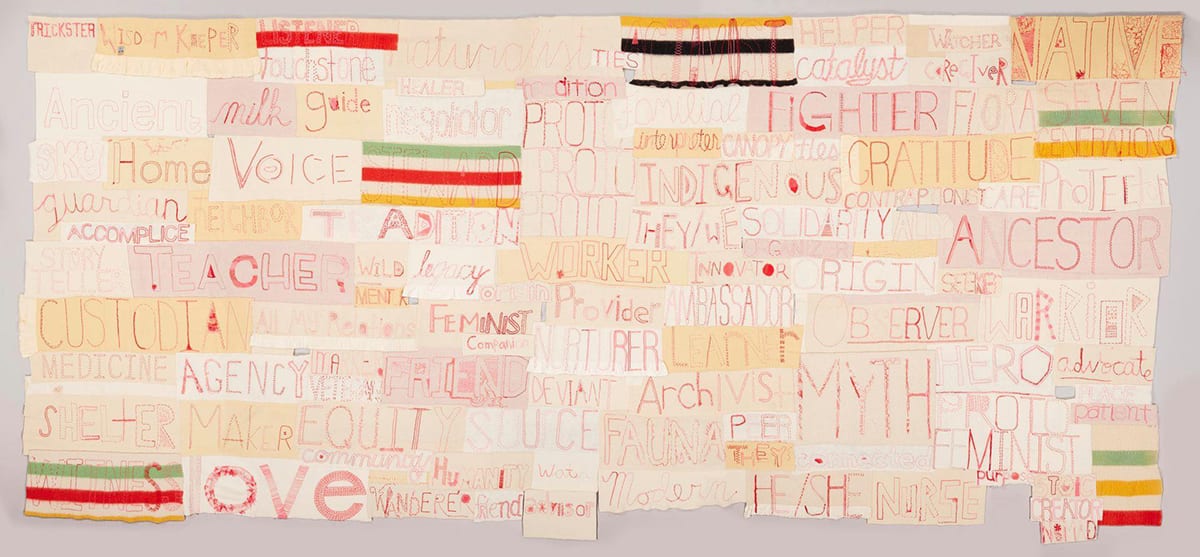 TRICKSTER
WISDOM KEEPER
LISTENER
naturalist
TIES
ACTIVIST
HELPER
WATCHER
NATIVE
touchstone
catalyst
CAREGIVER
HEALER
tradition
Ancient
milk
guide
negotiator
PROTO
familial
FIGHTER
FLORA
SEVEN
GENERATIONS
SKY
Home
VOICE
STEWARD
PROTO
interpreter
CANOPY
titles
GRATITUDE
INDIGENOUS
CONTRAPTIONIST
CARE
PROTECTOR
guardian
NEIGHBOR
TRADITION
PROTO
THEY/WE
SOLIDARITY
ANCESTOR
ACCOMPLICE
STORY
TELLER
TEACHER
WILD
legacy
WORKER
INNOVATOR
ORIGIN
SEEKER
MENTOR
origin
Provider
AMBASSADOR
OBSERVER
WARRIOR
CUSTODIAN
All My Relations
FEMINIST
Companion
NURTURER
LEARNER
MEDICINE
AGENCY
FRIEND
DEVIANT
Archivist
MYTH
HERO
advocate
SHELTER
MAKER
EQUITY
FAUNA
PEER
PROTO
FEMINIST
patient
community
HUMANITY
THEY
connected
WITNESS
love
WANDERER
friend
advisor
Modern
HE/SHE
NURSE
CREATOR